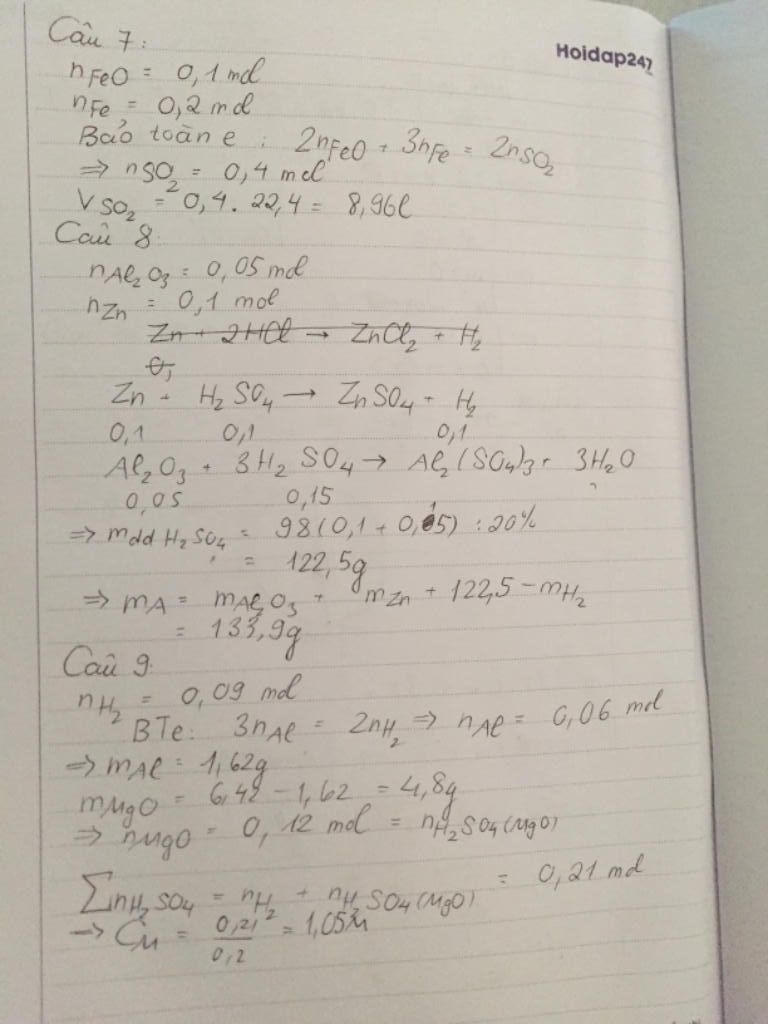 Câu 7:
Hoidap247
nFeO = 0,1 mol
nFe = 0,2 mol
Bảo toàn e : 2nFeO + 3nFe = 2nSO2
⇒ nSO2 = 0,4 mol
VSO2 = 0,4 . 22,4 = 8,96l
Câu 8:
nAl2O3 = 0,05 mol
nZn = 0,1 mol
Zn + 2HCl → ZnCl2 + H2
0,
Zn + H2SO4 → ZnSO4 + H2
0,1 0,1 0,1
Al2O3 + 3H2SO4 → Al2(SO4)3 + 3H2O
0,05 0,15
⇒ mdd H2SO4 = 98(0,1 + 0,15) : 20%
= 122,5g
⇒ mA = mAl2O3 + mZn + 122,5 - mH2
= 133,9g
Câu 9:
nH2 = 0,09 mol
BTe: 3nAl = 2nH2 ⇒ nAl = 0,06 mol
⇒ mAl = 1,62g
mMgO = 6,42 - 1,62 = 4,8g
⇒ nMgO = 0,12 mol = nH2SO4(MgO)
∑nH2SO4 = nH2 + nH2SO4(MgO) = 0,21 mol
→ CM = 0,21/0,2 = 1,05M